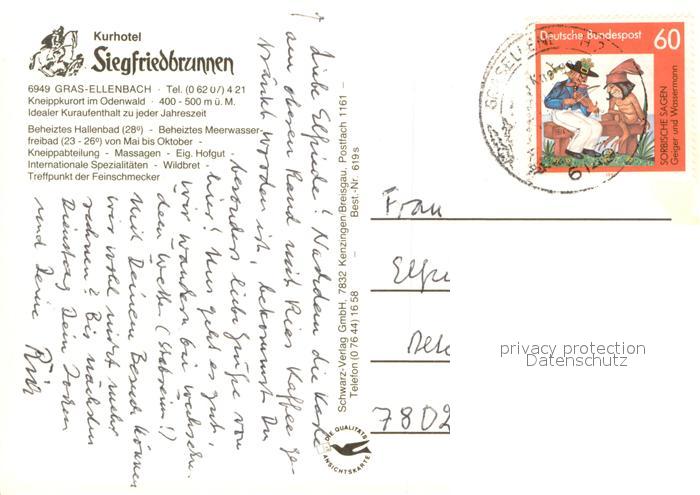 Kurhotel
Siegfriedbrunnen
6949 GRAS-ELLENBACH · Tel. (0 62 07) 4 21
Kneippkurort im Odenwald · 400 - 500 m ü. M.
Idealer Kuraufenthalt zu jeder Jahreszeit
Beheiztes Hallenbad (28º) - Beheiztes Meerwasser-
freibad (23 - 26º) von Mai bis Oktober -
Kneippabteilung - Massagen - Eig. Hofgut -
Internationale Spezialitäten - Wildbret -
Treffpunkt der Feinschmecker
Liebe Elfriede! Nachdem die Karte
am oberen Rand mit Kaffee ge-
tränkt worden ist, bekommst Du
besonders liebe Grüße von
mir! Uns geht es gut,
wir wandern bei wechseln-
dem Wetter
Mit Deinem Besuch können
wir wohl nicht mehr
rechnen? Bis nächsten
Dienstag Dein
und Deine
Schwarz-Verlag GmbH, 7832 Kenzingen-Breisgau, Postfach 1161 -
Telefon (0 76 44) 16 58 - Best.-Nr. 619s
DIE QUALITÄTS
ANSICHTSKARTE
Deutsche Bundespost 60
SORBISCHE SAGEN
Geiger und Wassermann
Frau
Elfri
7802
privacy protection
Datenschutz